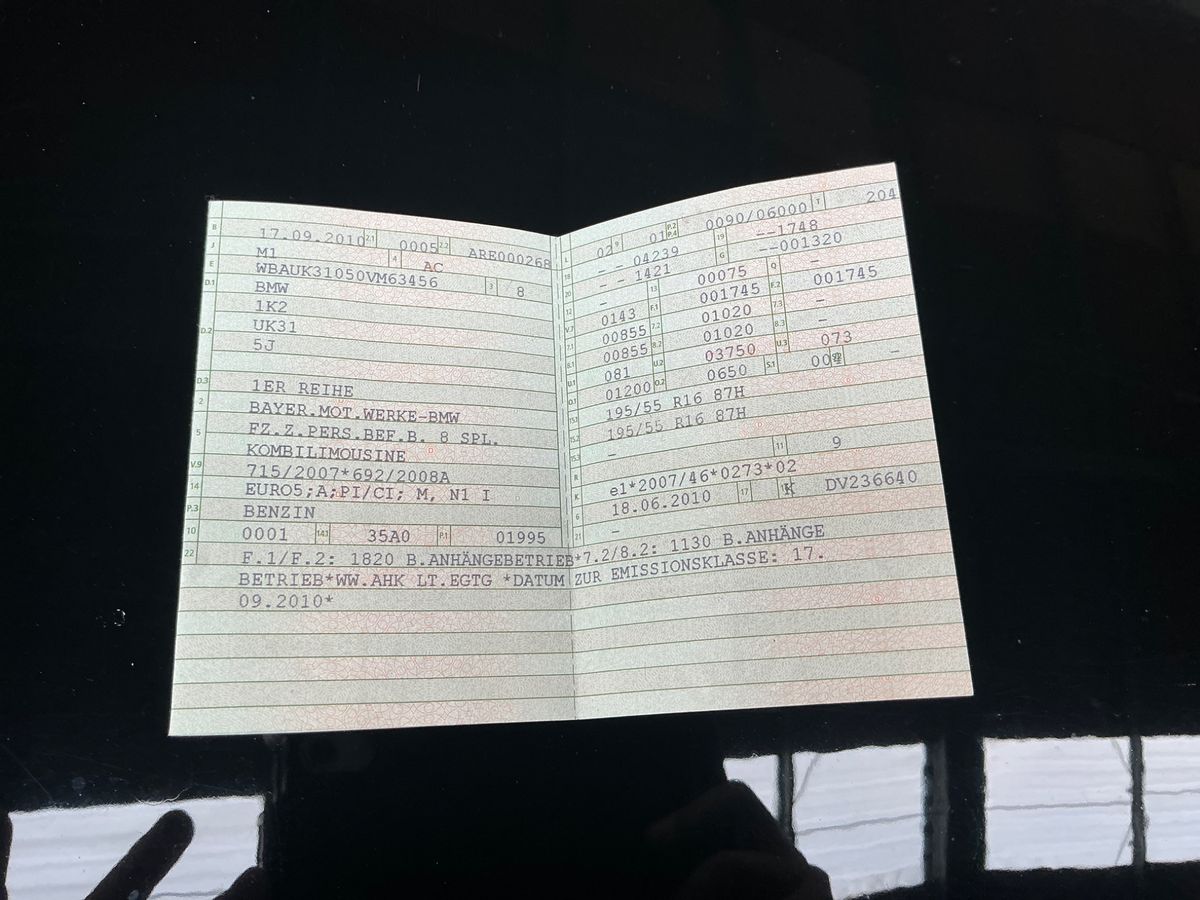 B 17.09.2010 2.1 0005 2.2 ARE000268
J M1 4 AC
E WBAUK31050VM63456 3 8
D.1 BMW
1K2
D.2 UK31
5J
D.3 1ER REIHE
2 BAYER.MOT.WERKE-BMW
5 FZ.Z.PERS.BEF.B. 8 SPL.
KOMBILIMOUSINE
V.9 715/2007*692/2008A
14 EURO5;A;PI/CI; M, N1 I
P.3 BENZIN
10 0001 14.1 35A0 P.1 01995
22 F.1/F.2: 1820 B.ANHÄNGEBETRIEB*7.2/8.2: 1130 B.ANHÄNGE
BETRIEB*WW.AHK LT.EGTG *DATUM ZUR EMISSIONSKLASSE: 17.
09.2010*
L 02 9 01 P.2 P.4 0090/06000 T 204
18 - - 04239 19 --1748
20 - - 1421 G --001320
12 - 13 00075 Q -
V.7 0143 F.1 001745 F.2 001745
7.1 00855 7.2 01020 7.3 -
8.1 00855 8.2 01020 8.3 -
U.1 081 U.2 03750 U.3 073
O.1 01200 O.2 0650 S.1 -
15.1 195/55 R16 87H
15.2 195/55 R16 87H
15.3 -
R 11 9
K e1*2007/46*0273*02
6 18.06.2010 17 K DV236640
21 -